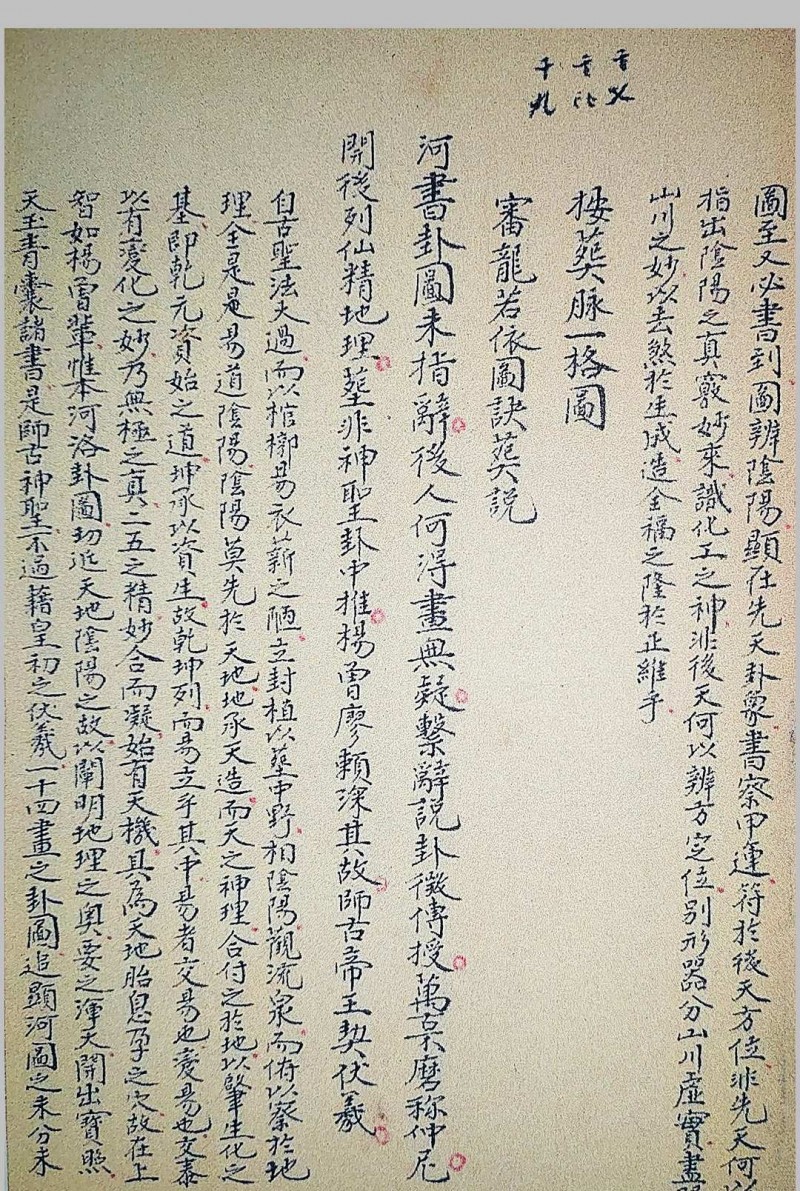 圖至又必書到圖辨陰陽顯在先天卦象書察甲運符於後天方位非先天何以
指出陰陽之真竅妙來識化工之神非後天何以辨方定位別形器分山川虛實盡
山川之妙以去煞於生成造全福之隆於正維乎
按葬脉一格圖
審龍若依圖訣葬説
河書卦圖未指辭後人何淂畫無疑繫辭說卦徵傳授萬宗磨称仲尼
開後列仙精地理塟非神聖卦中推楊曾廖頼深其故師古帝王契伏羲
自古聖法大過而以棺槨易衣薪之陋立封植以塟中野相陰陽觀流泉而俯以察於地
理全是是易道陰陽陰陽莫先於天地地承天造而天之神理合付之於地以肇生化之
基即乾元資始之道坤承以資生故乾坤列而易立乎其中易者交易也変易也交泰
以有変化之妙乃無極之真二五之精妙合而凝始有天機其為天地胎息孕之穴故在上
智如楊曾輩惟本河洛卦圖切近天地陰陽之故以闡明地理之奧要之渾天開出寶照
天玉青囊諸書是師古神聖不過藉皇初之伏羲一十四畫之卦圖追顯河圖之未分未